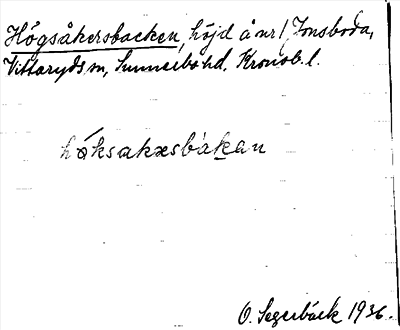 Högsåkersbacken, höjd å nr 1, Jonsboda,
Vittaryds sn, Sunnerbo hd. Kronob. l.
høksakæsbakan
O. Segerbäck 1936.